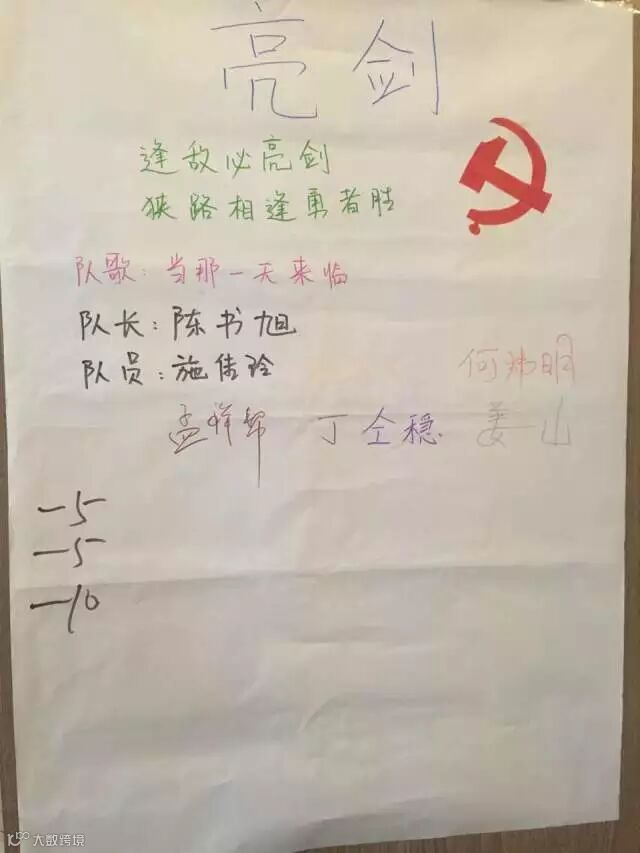 亮剑
逢敌必亮剑
狭路相逢勇者胜
队歌：当那一天来临
队长：陈书旭
队员：施倩玲 何 明
孟祥帮 丁仝稳 姜山
-5
-5
-10
大数跨境